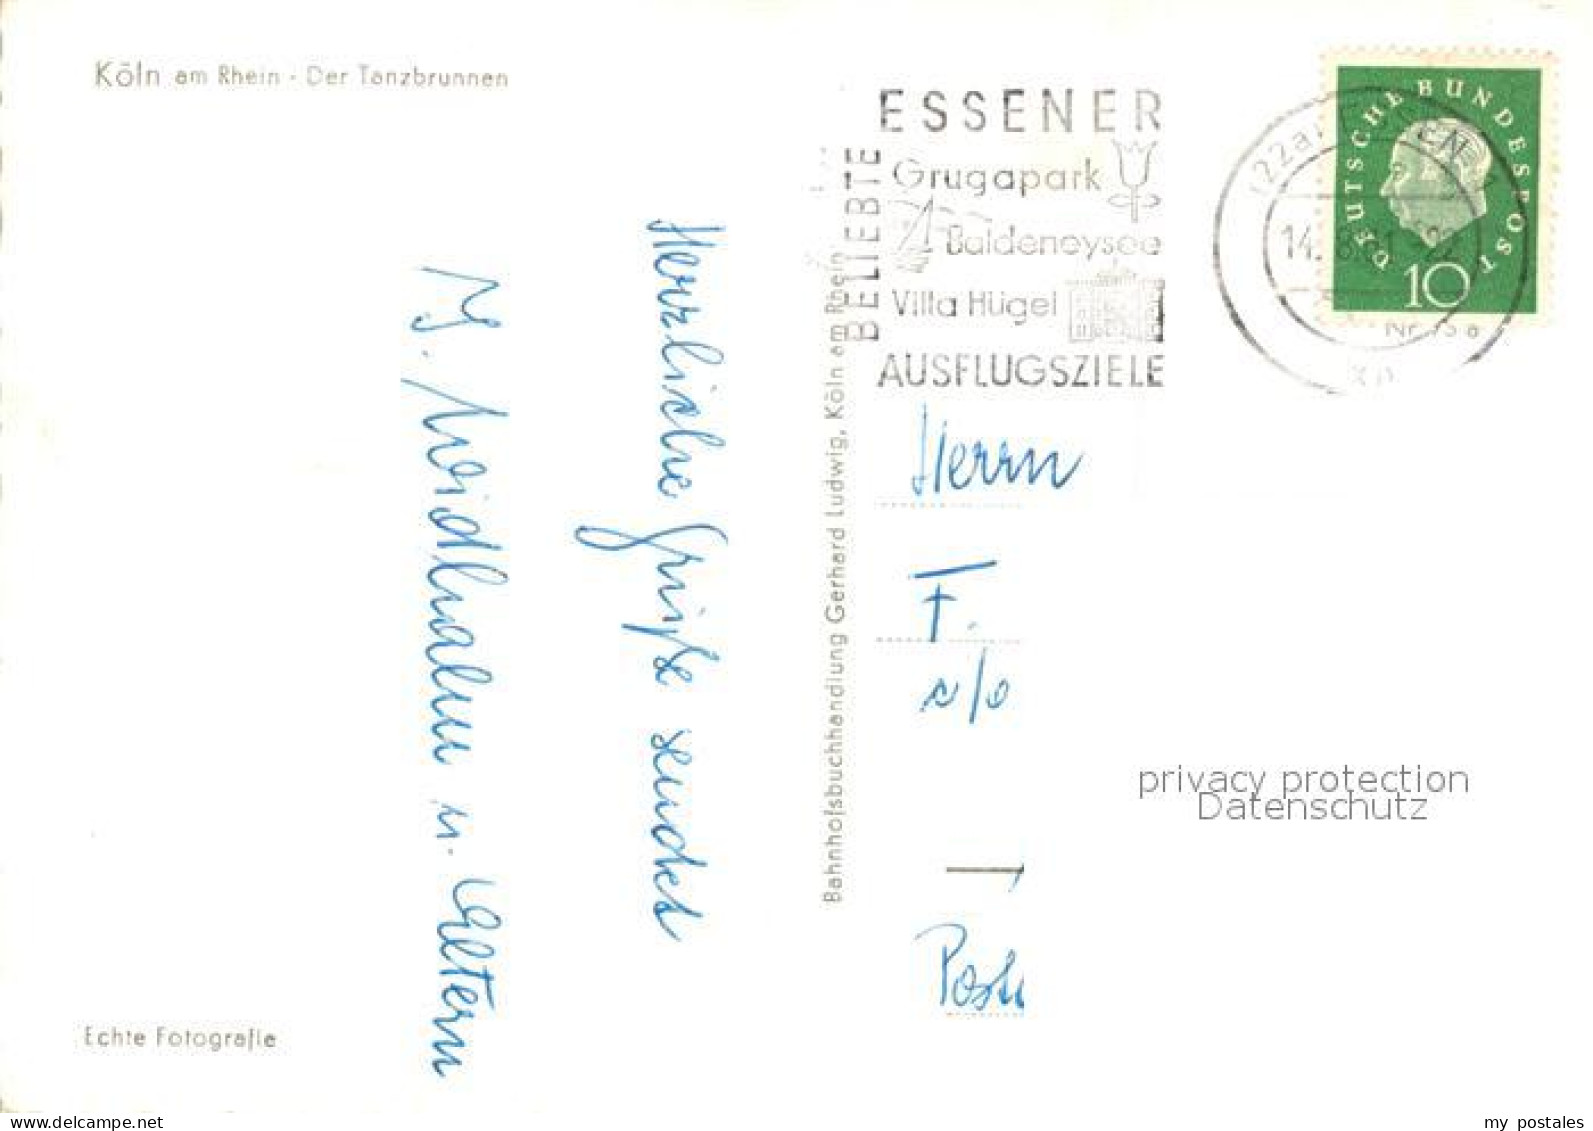 Köln am Rhein · Der Tanzbrunnen
Herzliche Grüße sendet
u. Eltern
Echte Fotografie
Bahnhofsbuchhandlung Gerhard Ludwig, Köln am Rhein
BELIEBTE
ESSENER
Grugapark
Baldeneysee
Villa Hügel
AUSFLUGSZIELE
(22a) ESSEN 1
DEUTSCHE BUNDESPOST
10
Herrn
F.
c/o
privacy protection
Datenschutz
www.delcampe.net
my_postales